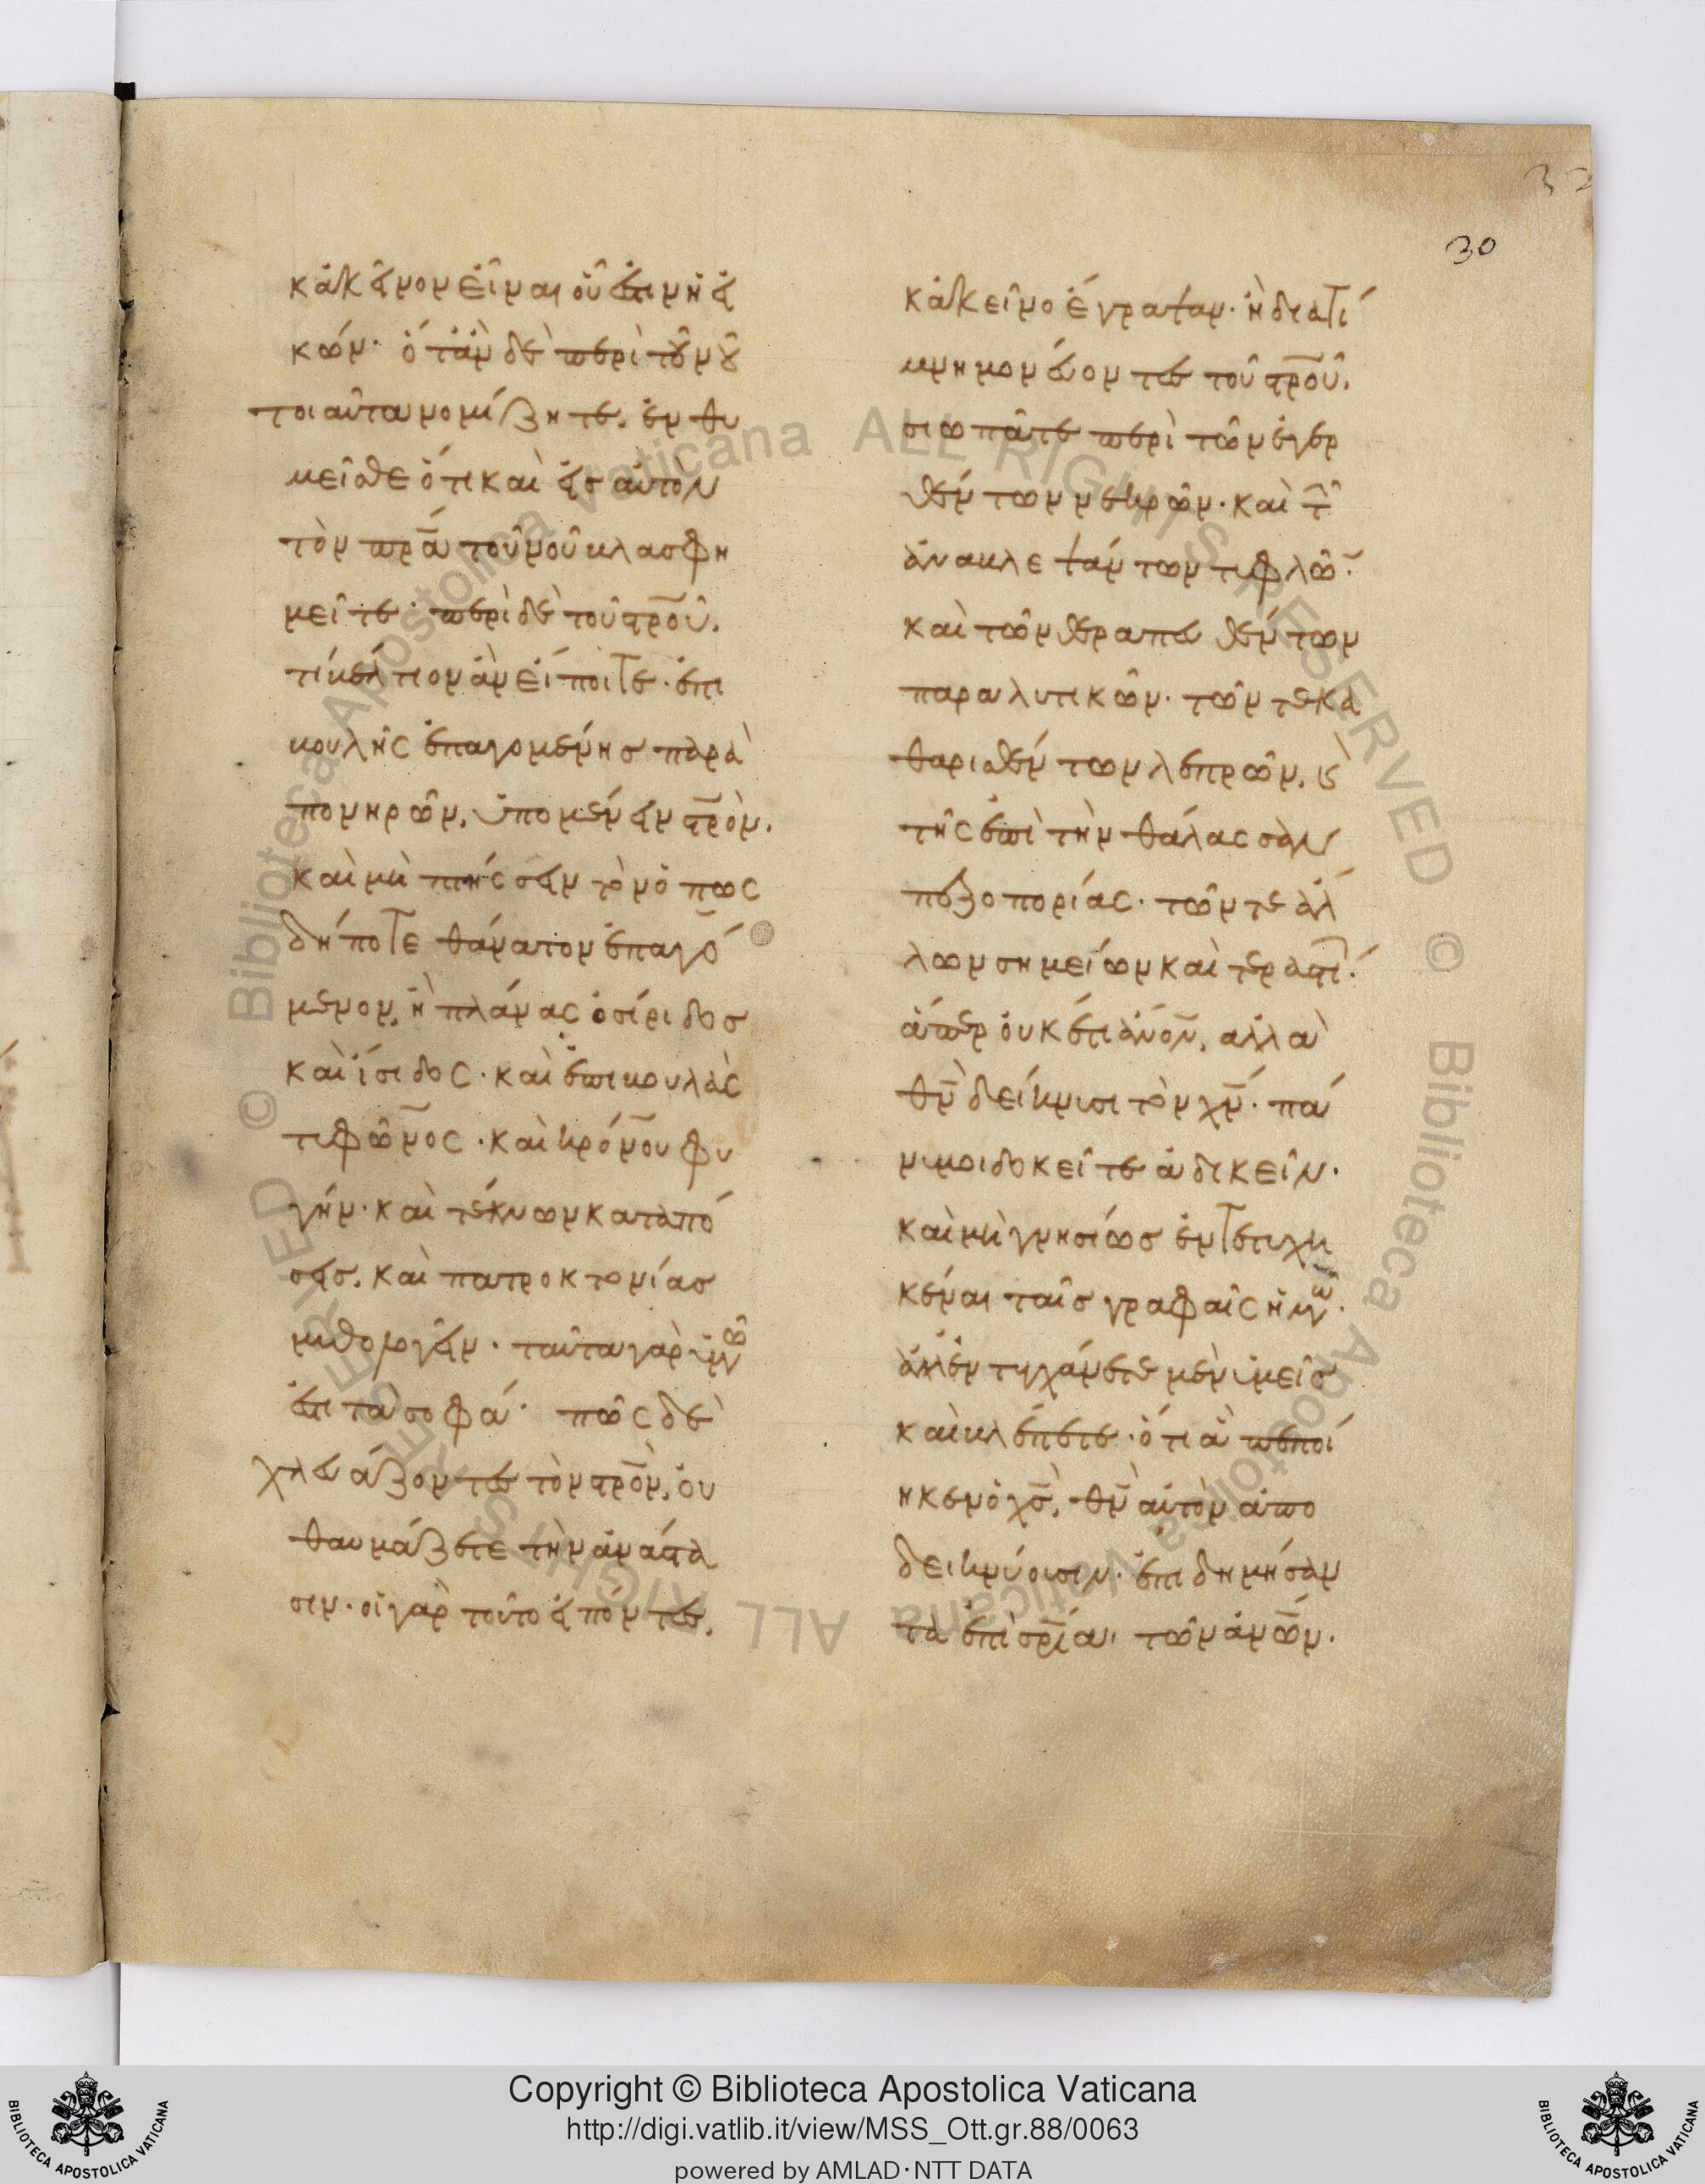 κἀκεῖνον εἶναι οὗ ἐστιν ἡ εἰ
κών· ὅταν δὲ περὶ τοῦ νοῦ
τοιαῦτα νομίζητε, ἐνθυ
μεῖσθε ὅτι καὶ εἰς αὐτὸν
τὸν πρ̅α τοῦ νοῦ βλασφη
μεῖτε· περὶ δὲ τοῦ στρ̅οῦ,
τί βέλτιον ἂν εἴποιτε· ἐπι
βουλῆς ἐπαγομένης παρὰ
πονηρῶν, ὑπομένειν στρ̅ὸν,
καὶ μὴ πτήσσειν τὸν ὁπωσ
δήποτε θάνατον ἐπαγό
μενον, ἢ πλάνας ὀσίριδος
καὶ ἴσιδος· καὶ ἐπιβουλὰς
τυφῶνος· καὶ κρόνου φυ
γήν· καὶ τέκνων καταπό
σεις, καὶ πατροκτονίας
μυθολογεῖν· ταῦτα γὰρ ὑμῶν
ἐστι τὰ σοφά· πῶς δὲ
χλευάζοντες τὸν στρ̅ὸν, οὐ
θαυμάζετε τὴν ἀνάστα
σιν· οἱ γὰρ τοῦτο εἰπόντες,
κἀκεῖνο ἔγραψαν· ἢ διατί
μνημονεύοντες τοῦ στρ̅οῦ,
σιωπᾶτε περὶ τῶν ἐγερ
θέντων νεκρῶν· καὶ τῶ̅
ἀναβλεψάντων τυφλῶ̅·
καὶ τῶν θεραπευθέντων
παραλυτικῶν· τῶν τε κα
θαρισθέντων λεπρῶν, ϗ
τῆς ἐπὶ τὴν θάλασσαν
πεζοπορίας· τῶν τε ἄλ
λων σημείων καὶ τεράτω̅·
ἅπερ οὐκέτι ἀν̅ον, ἀλλὰ
θν̅ δείκνυσι τὸν χν̅· πά
νυ μοι δοκεῖτε ἀδικεῖν·
καὶ μὴ γνησίως ἐντετυχη
κέναι ταῖς γραφαῖς ἡμῶν·
ἀλλ' ἐντυγχάνετε μὲν ὑμεῖς
καὶ βλέπετε· ὅτι ἃ πεποί
ηκεν ὁ χς̅, θν̅ αὐτὸν ἀπο
δεικνύουσιν· ἐπιδημήσαν
τα ἐπὶ σρ̅ίαι τῶν ἀν̅ων·
30
32
Copyright © Biblioteca Apostolica Vaticana
http://digi.vatlib.it/view/MSS_Ott.gr.88/0063
powered by AMLAD·NTT DATA
BIBLIOTECA APOSTOLICA VATICANA
BIBLIOTECA APOSTOLICA VATICANA
© Biblioteca Apostolica Vaticana ALL RIGHTS RESERVED
© Biblioteca Apostolica Vaticana ALL RIGHTS RESERVED